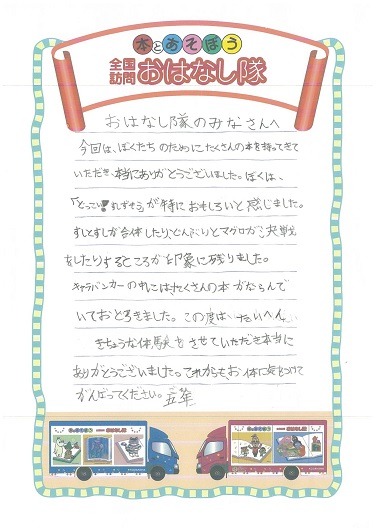 本とあそぼう
全国訪問おはなし隊
おはなし隊のみなさんへ
今回は、ぼくたちのためにたくさんの本を持ってきて
いただき、本当にありがとうございました。ぼくは、
が特におもしろいと感じました。
合体したり、とんぶりとマグロが対決戦
をしたりするところが印象に残りました。
キャラバンカーの中にはたくさんの本がならんで
いておどろきました。この度は、たいへん
きちょうな体験をさせていただき本当に
ありがとうございました。これからもお体に気をつけて
がんばってください。五年